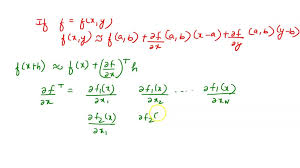 If f = f(x,y)
f(x,y) ≈ f(a,b) + ∂f/∂x (a,b) (x-a) + ∂f/∂y (a,b) (y-b)
f(x+h) ≈ f(x) + (∂f/∂x)ᵀ h
∂fᵀ/∂x = ∂f₁(x)/∂x₁ ∂f₁(x)/∂x₂ ..... ∂f₁(x)/∂x_N
∂f₂(x)/∂x₁ ∂f₂(